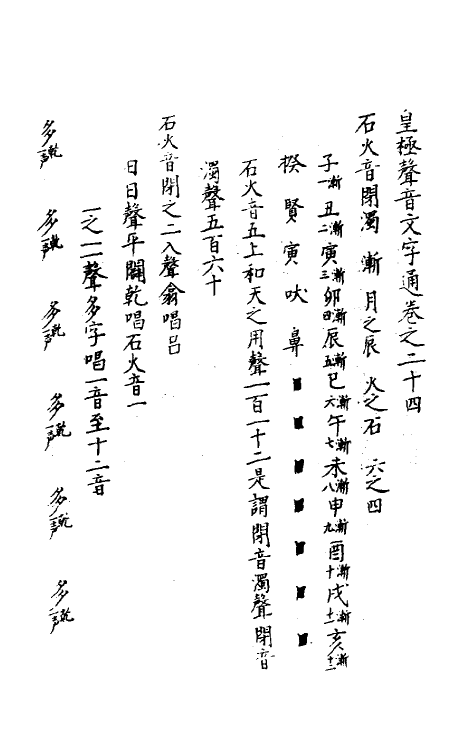 皇極聲音文字通卷之二十四
石火音閉濁 漸 月之辰 火之石 六之四
子一漸丑二漸寅三漸卯四漸辰五漸巳六漸午七漸未八漸申九漸酉十漸戌十一漸亥十二漸
揆賢寅吠鼻■■■■■■■
石火音五上和天之用聲一百一十二是謂閉音濁聲閉音
濁聲五百六十
石火音閉之二入聲翕唱呂
日日聲平闢乾唱石火音一
一之一聲多字唱一音至十二音
多乾一声 多乾一声 多乾一声 多乾一声 多乾一声 多乾一声